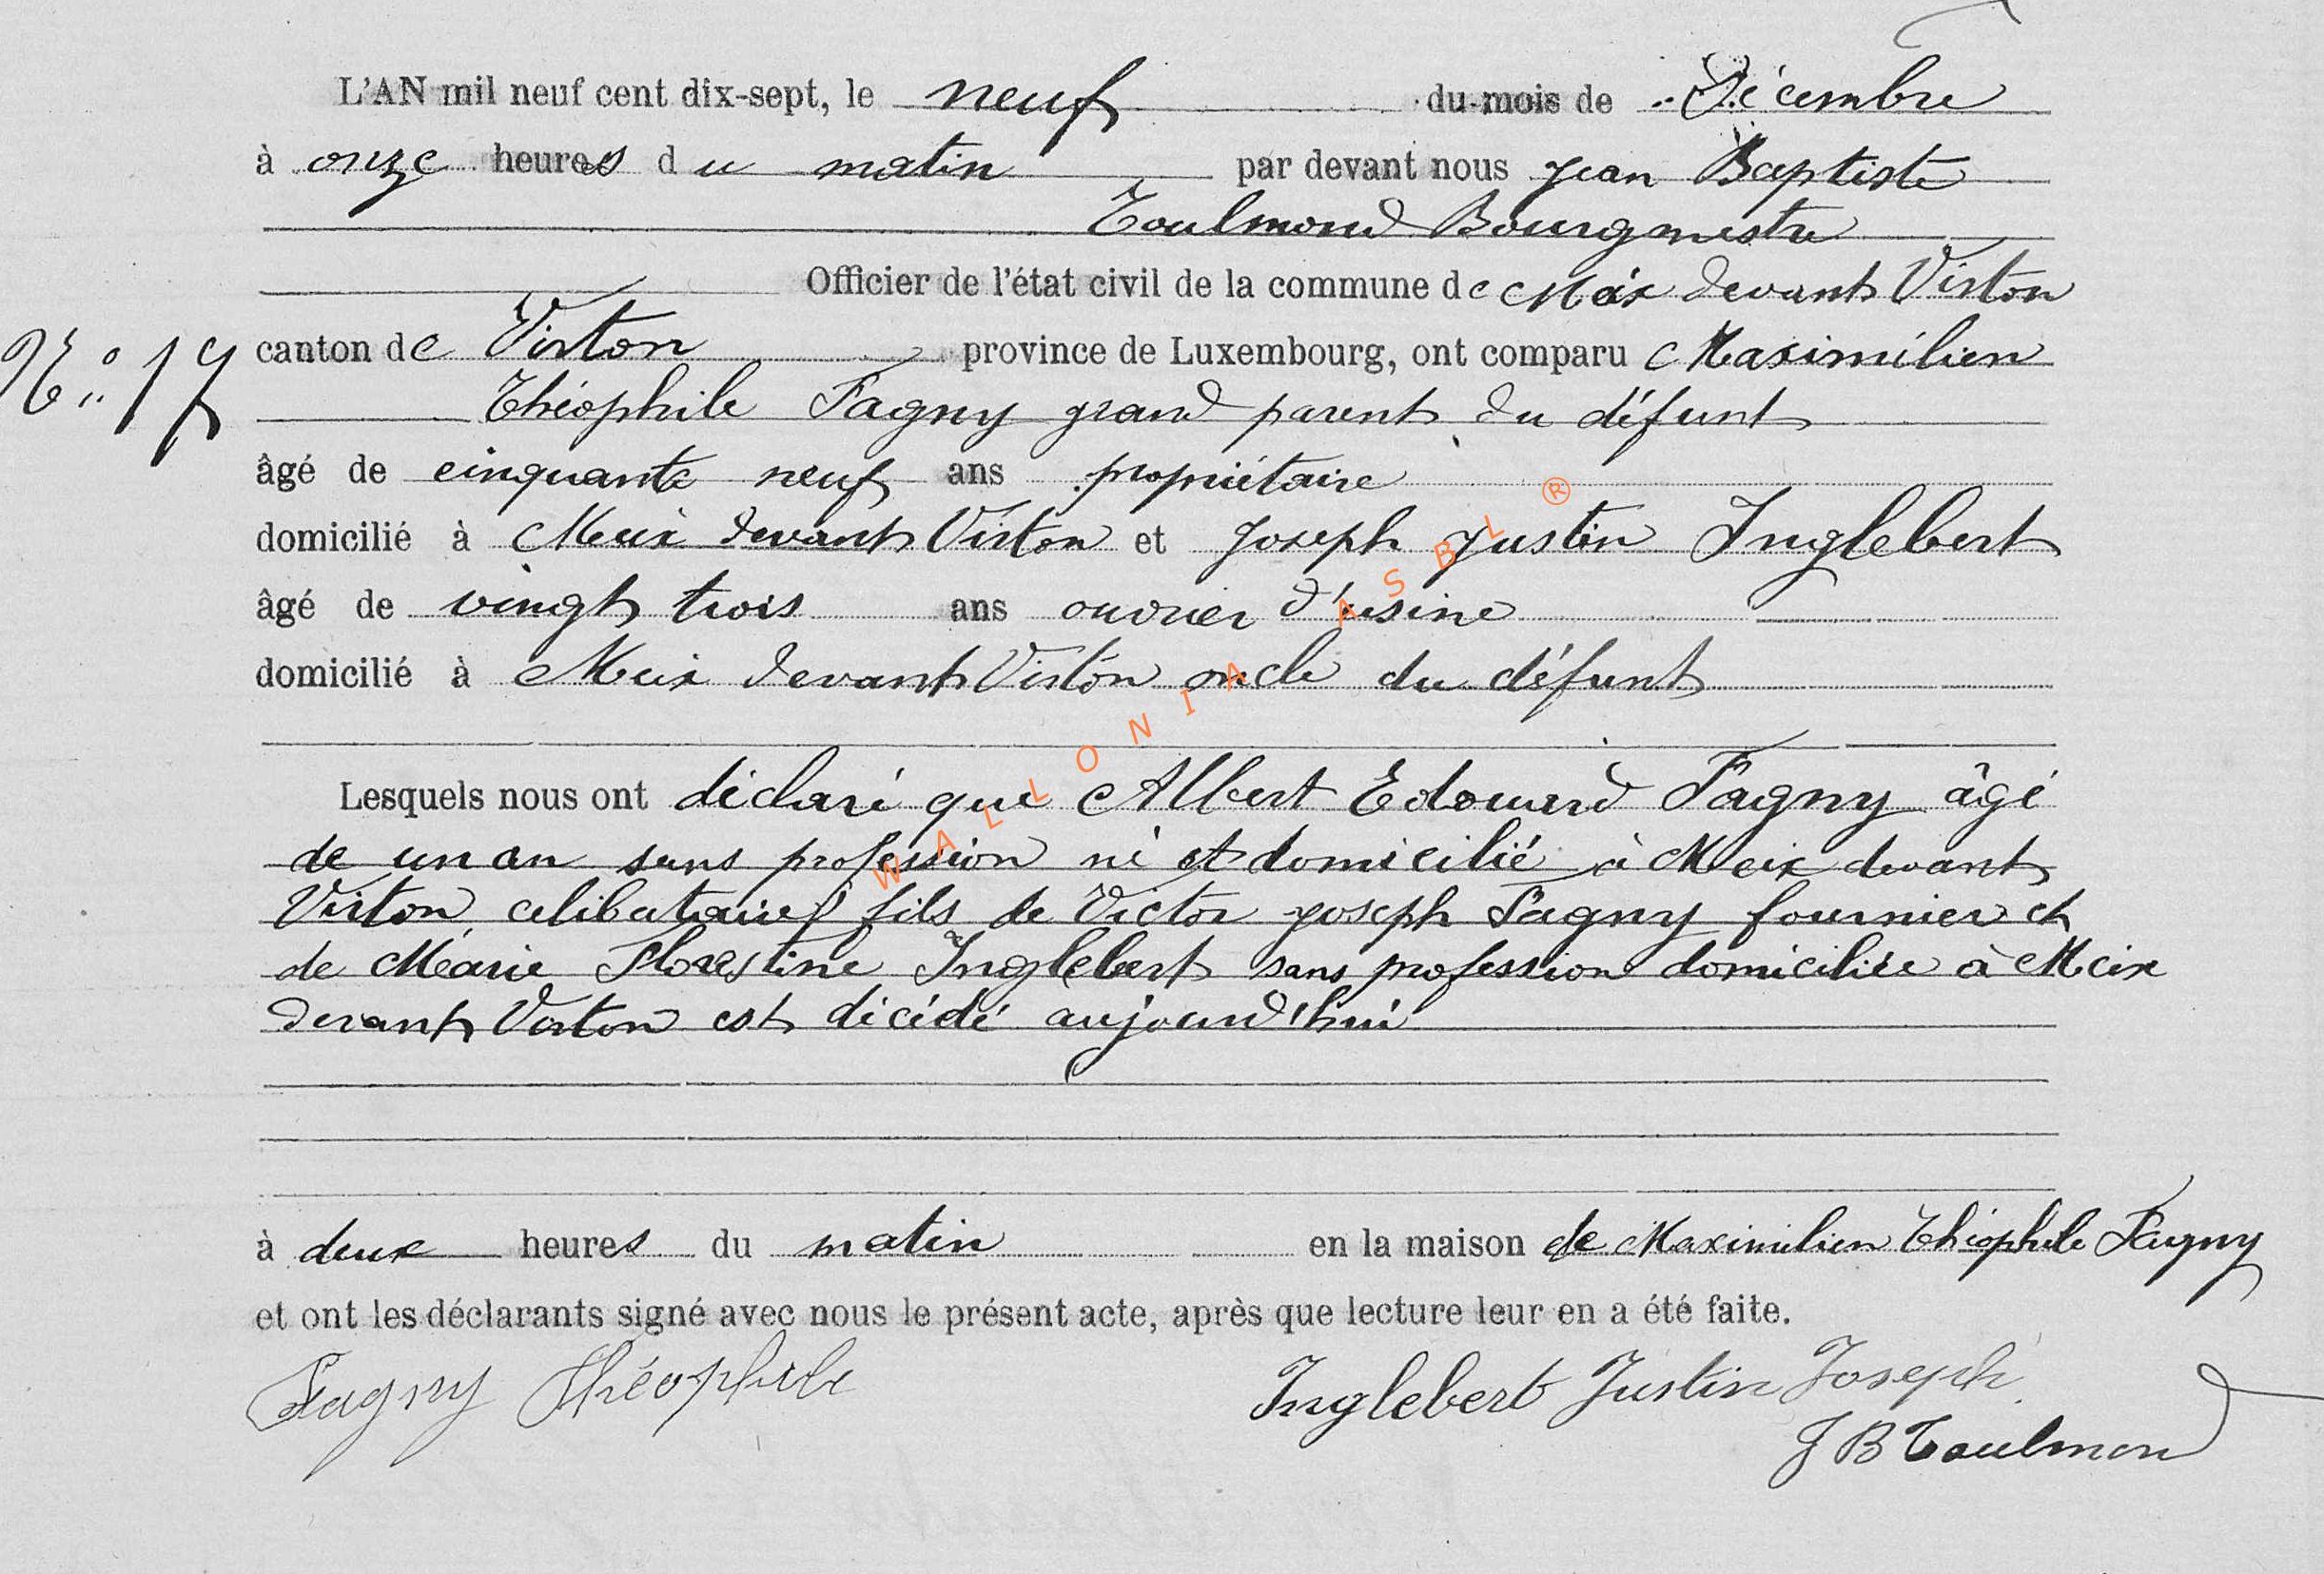 L'AN mil neuf cent dix-sept, le neuf du mois de Décembre
à onze heures du matin par devant nous Jean Baptiste
Toulmond Bourgmestre
Officier de l'état civil de la commune de Meix devant Virton
N° 17 canton de Virton province de Luxembourg, ont comparu Maximilien
Théophile Fagny grand parent du défunt
âgé de cinquante neuf ans propriétaire
domicilié à Meix devant Virton et Joseph Justin Inglebert
âgé de vingt trois ans ouvrier d'usine
domicilié à Meix devant Virton oncle du défunt
Lesquels nous ont déclaré que Albert Edouard Fagny âgé
de un an sans profession né et domicilié à Meix devant
Virton, célibataire fils de Victor Joseph Fagny fournier et
de Marie Florestine Inglebert sans profession domiciliée à Meix
devant Virton est décédé aujourd'hui
à deux heures du matin en la maison de Maximilien Théophile Fagny
et ont les déclarants signé avec nous le présent acte, après que lecture leur en a été faite.
Fagny Théophile Inglebert Justin Joseph
J B Toulmond
WALLONIA ASBL ®